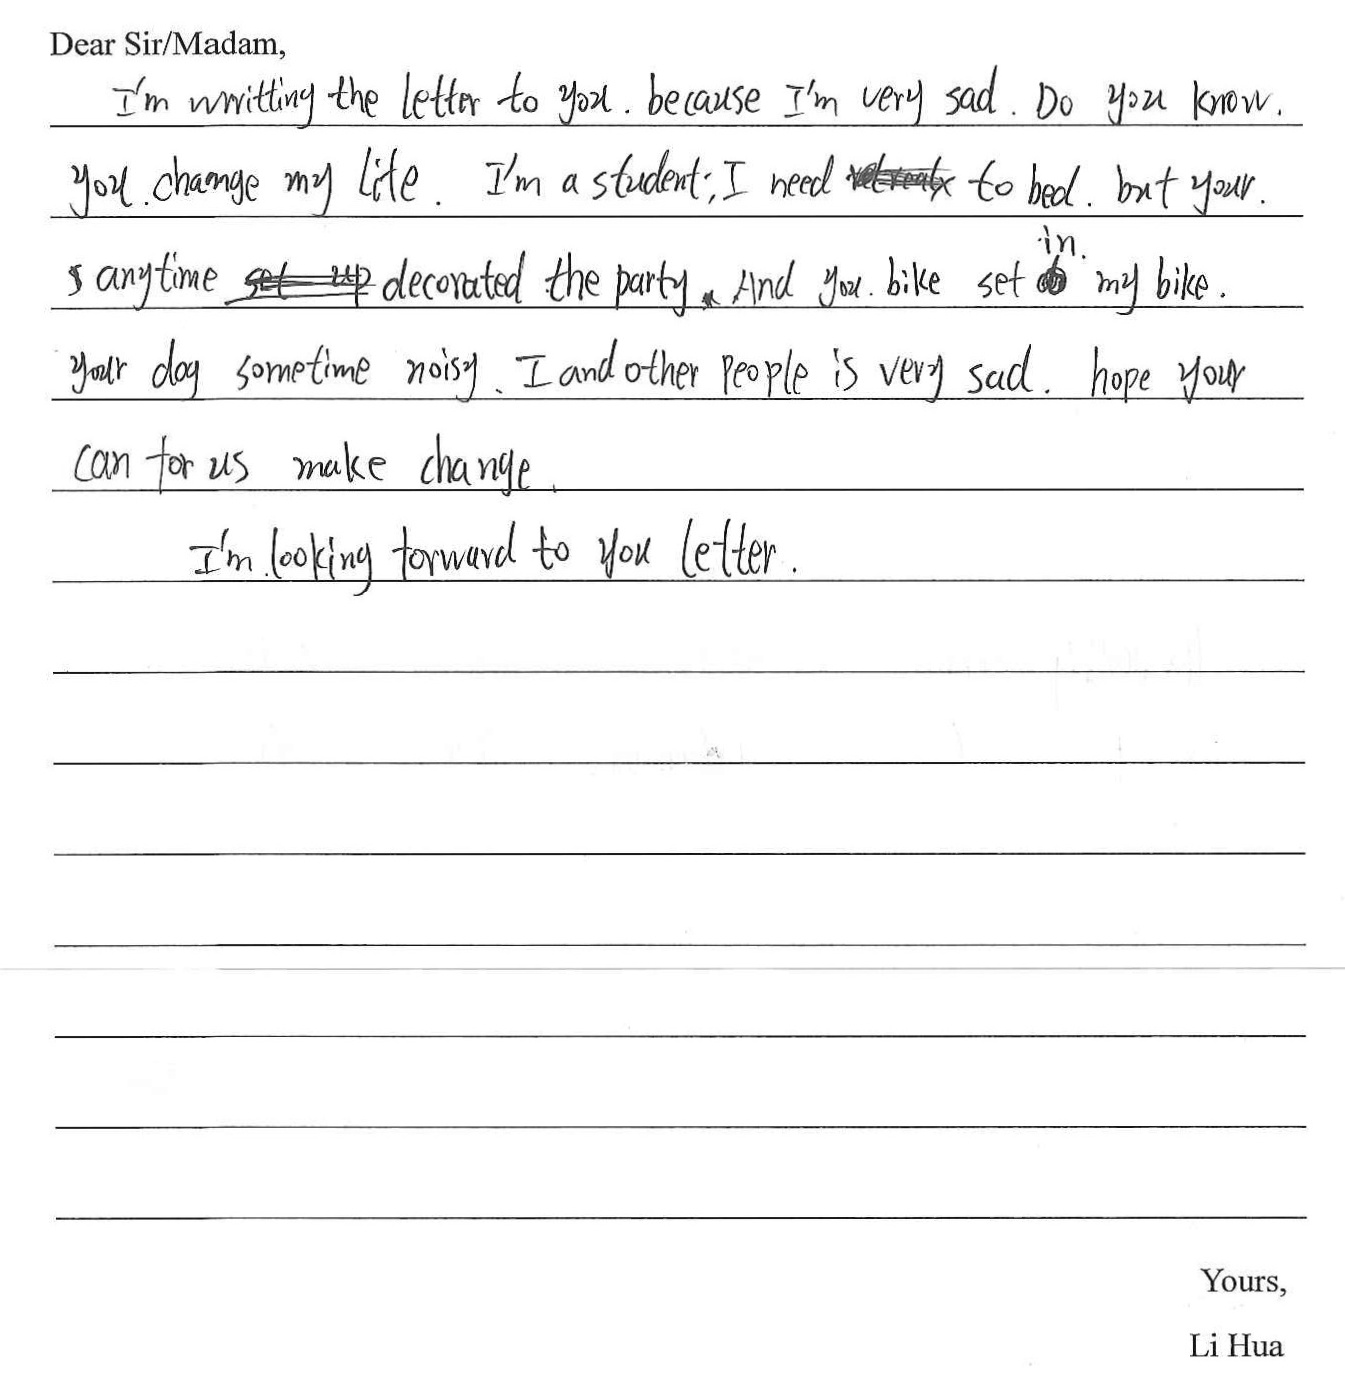 Dear Sir/Madam,
I'm writting the letter to you. because I'm very sad. Do you know.
you. chaange my life. I'm a student; I need to bed. but your.
s anytime set up decorated the party. And you. bike set in. my bike.
your dog sometime noisy. I and other people is very sad. hope your
can for us make change.
I'm looking forward to you letter.
Yours,
Li Hua